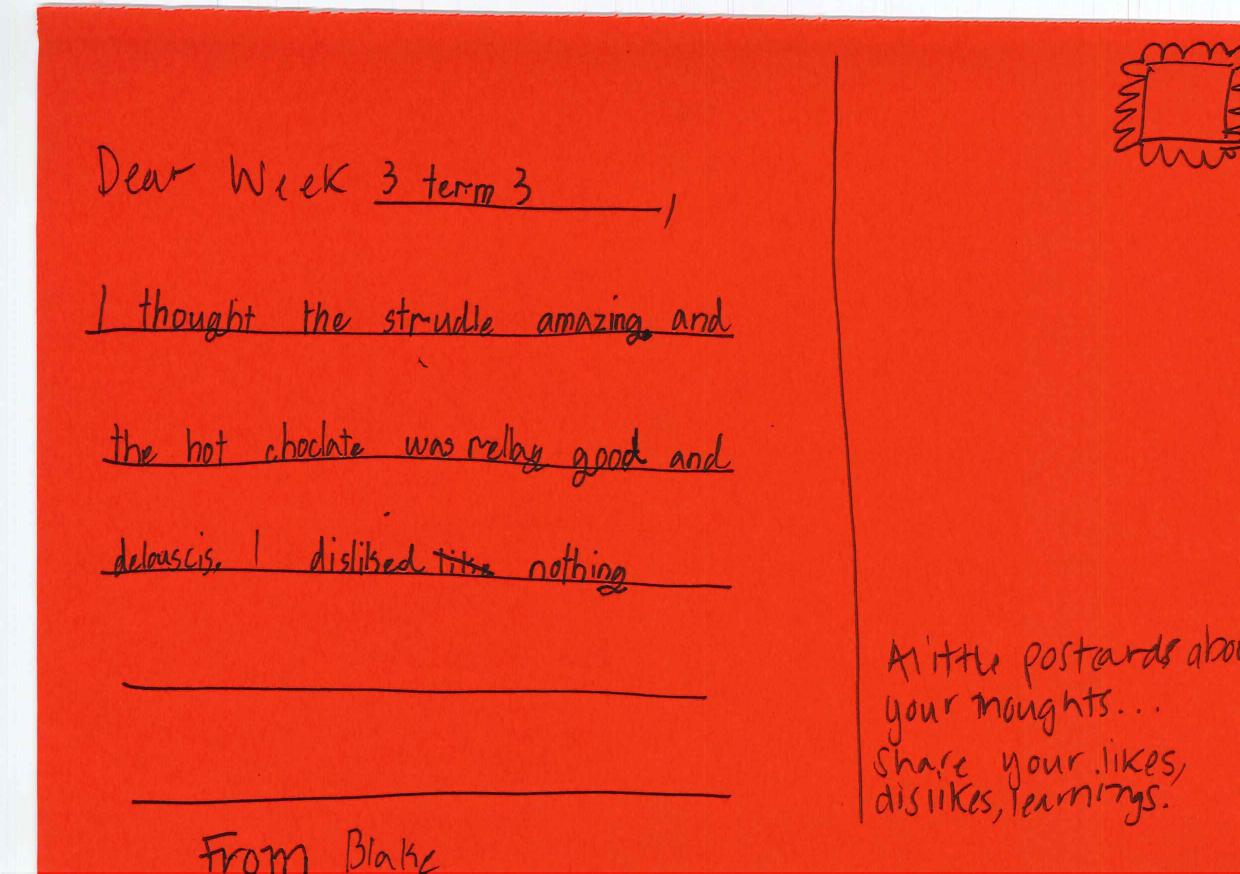 Dear Week 3 term 3,
I thought the strudle amazing. and
the hot choclate was rellay good and
delouscis. I disliked like nothing
From Blake
A little postcards abou
your thoughts...
share your likes,
dislikes, learnings.